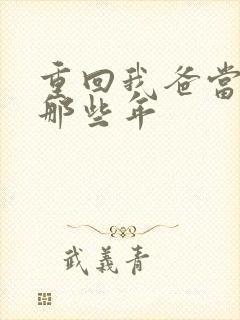 重回我爸当
那些年
武義青